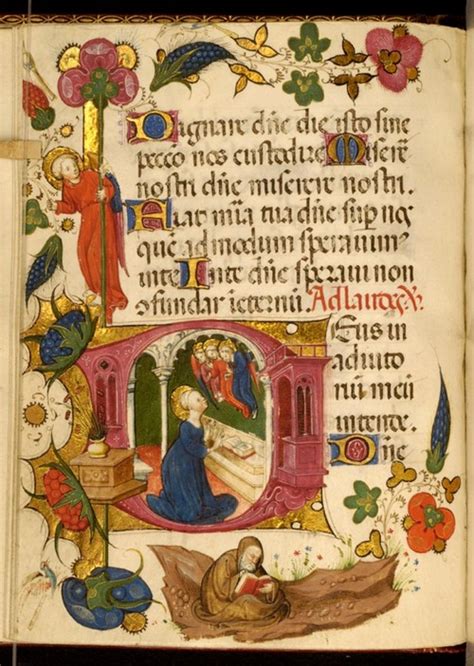 Dignare dn̄e die isto sine
pecc̄o nos custodire Miserē
nostri dn̄e miserere nostri.
Fiat mīa tua dn̄e sup̄ nos
quē ad modum sperauimꝰ
in te In te dn̄e speraui non
ꝯfundar ī eternū. Ad laudes
Deus in
adiuto
riū meū
intende.
Dn̄e